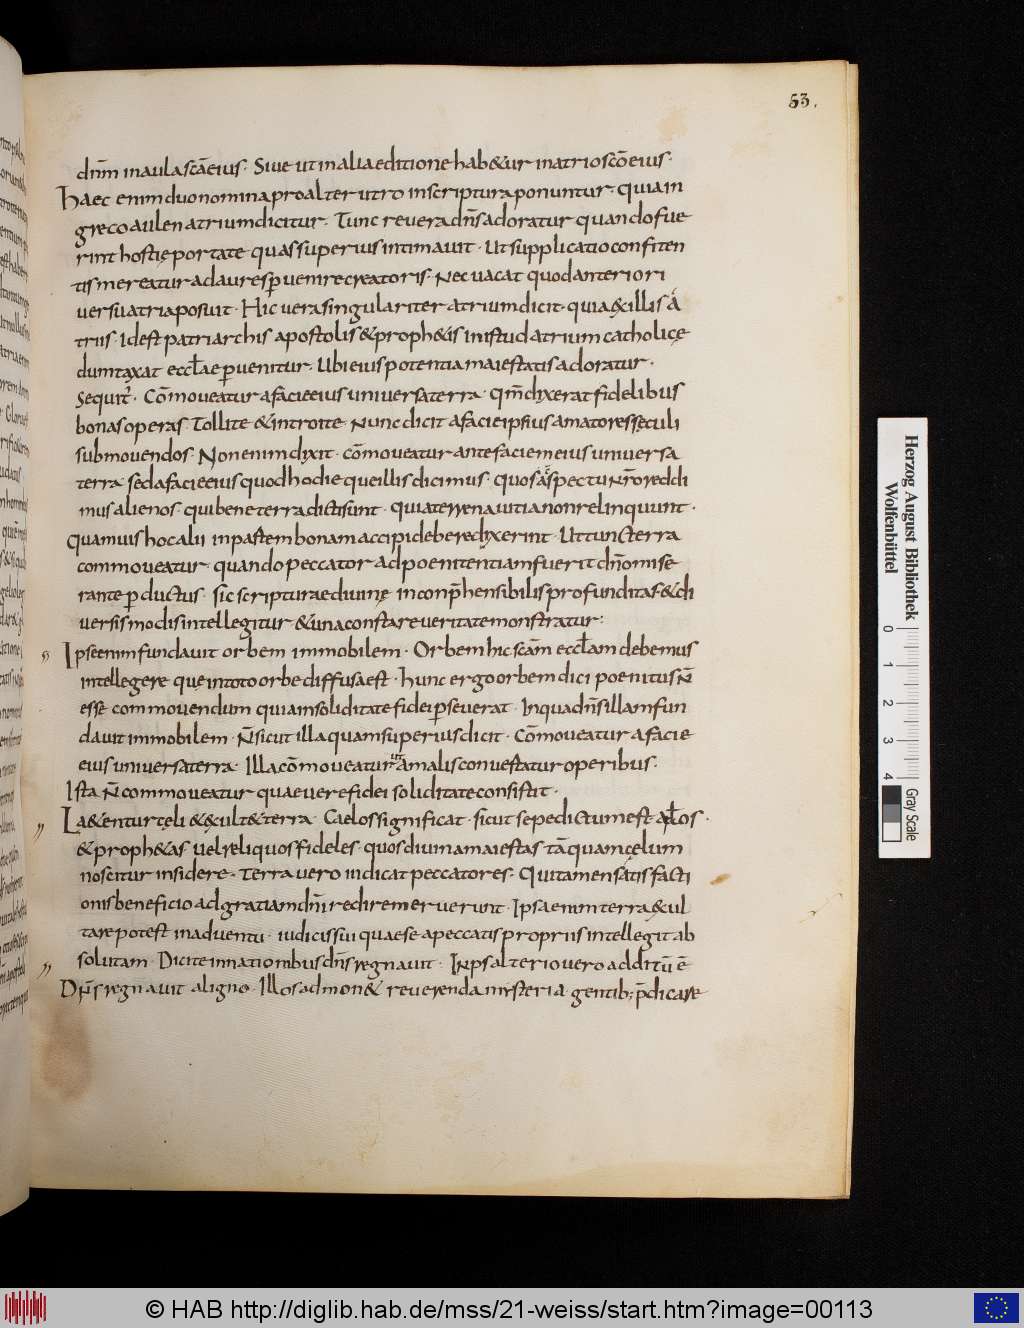 53.
dn̄m in aula scā eius. Siue ut in alia editione hab&ur in atrio scō eius.
Haec enim duo nomina pro alterutro in scriptura ponuntur. quia in
greco aulen atrium dicitur. Tunc reuera dn̄s adoratur quando fue
rint hostię portate quas superius intimauit. Ut supplicatio confiten
tis mereatur ad aures peruenire creatoris. Nec uacat quod anteriori
uersu atria posuit. Hic uera singulariter atrium dicit. quia ex illis a
triis. Id est patriarchis apostolis & proph&is in istud atrium catholicę
dumtaxat eccłae peruenitur. Ubi eius potentia maiestatis adoratur.
Sequitr̄. Cōmoueatur a facie eius uniuersa terra. Qm̄ dixerat fidelibus
bonas operas. Tollite & introite. Nunc dicit a facie ipsius amatores sęculi
submouendos. Non enim dixit. cōmoueatur ante faciem eius uniuersa
terra sed a facie eius quod hodieque illis dicimus. quos aspectui nr̄o reddi
mus alienos. qui bene terra dicti sunt. quia terrena uitia non relinquunt.
quamuis hoc alii in pastem bonam accipi debere dixerint. Ut tunc terra
commoueatur quando peccator ad poenitentiam fuerit dn̄o mise
rante perductus. sic scripturae diuinę inconp̄hensibilis profunditas & di
uersis modis intellegitur & una constare ueritate monstratur:
Ipse enim fundauit orbem immobilem. Orbem hic scām eccłam debemus
intellegere que in toto orbe diffusa est. hunc ergo orbem dici poenitus n̄
esse commouendum quia in soliditate fidei perseuerat. In qua dn̄s illam fun
dauit immobilem. N̄ sicut illa quam superius dicit. Cōmoueatur a facie
eius uniuersa terra. Illa cōmoueatur ut a malis conuestatur operibus.
Ista n̄ commoueatur quae uere fidei soliditate consistit.
La&entur cęli & exult& terra. Caelos significat. sicut sepe dictum est apłos.
& proph&as uel reliquos fideles. quos diuina maiestas tāquam cęlum
noscitur insidere. Terra uero indicat peccatores. Qui tamen satisfacti
onis beneficio ad gratiam dn̄i redire meruerunt. Ipsa enim terra exul
tare potest in aduentu. iudicis sui quae se a peccatis propriis intellegit ab
solutam. Dicite in nationibus dn̄s regnauit. In psalterio uero additū ē
Dn̄s regnauit a ligno. Illos admon& reuerenda mysteria gentib; p̄dicare
Herzog August Bibliothek
Wolfenbüttel
0 1 2 3 4
Gray Scale
© HAB http://diglib.hab.de/mss/21-weiss/start.htm?image=00113